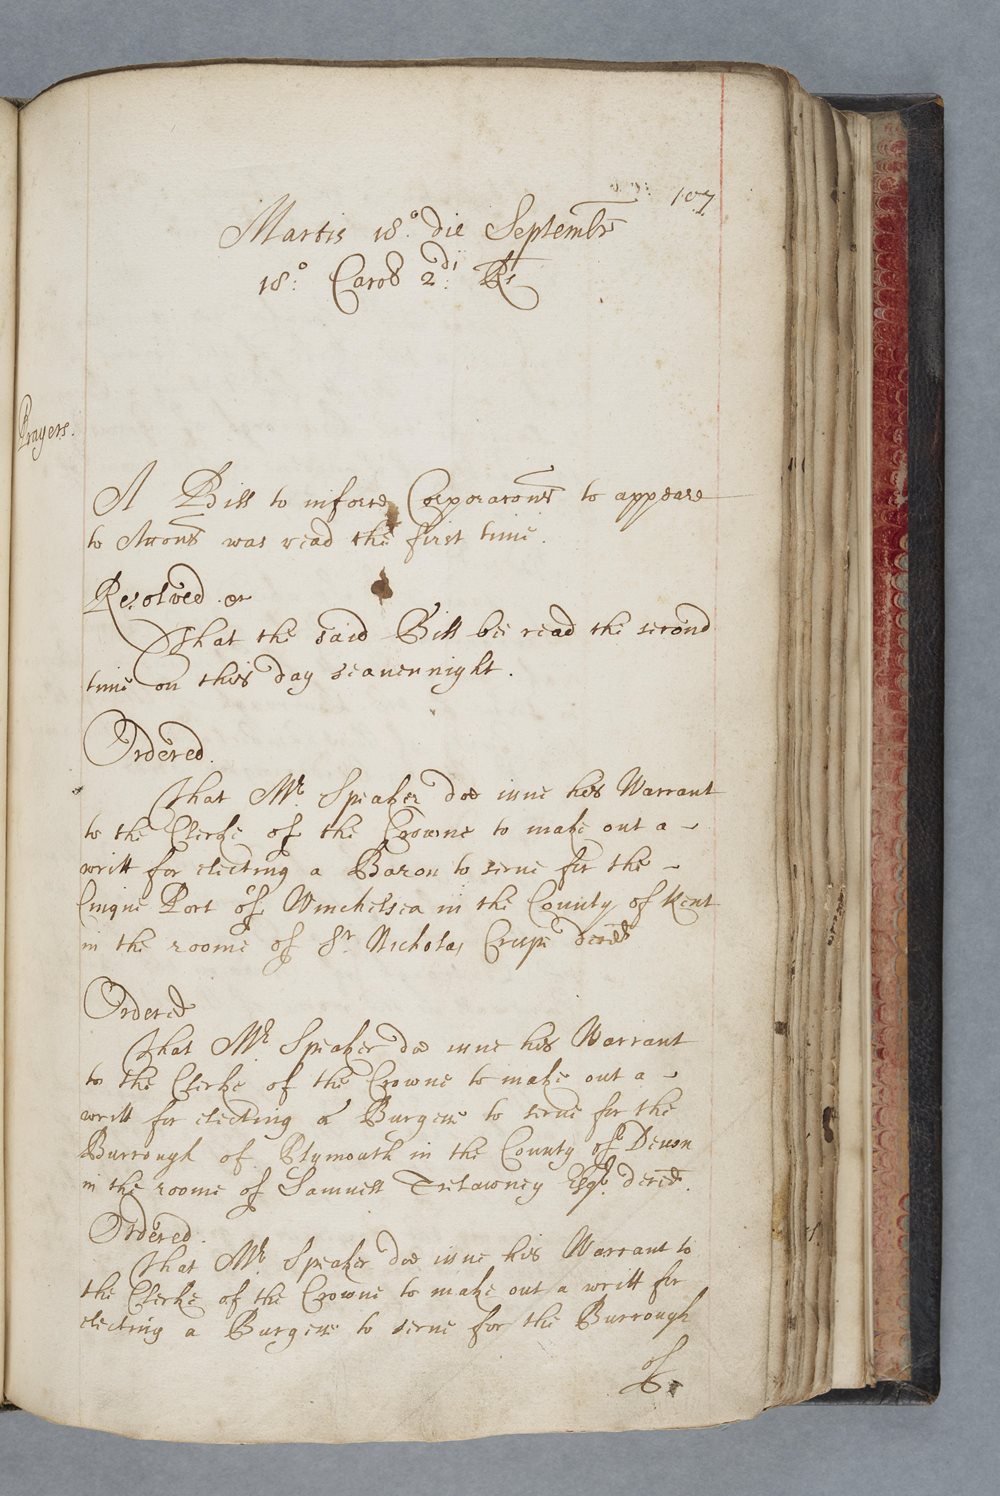 107
Martis 18o. die Septembr
18o: Carol 2di: Rs
Prayers.
A Bill to inforce Corporacons to appeare
to Accons was read the first time.
Resolved &c
That the said Bill bee read the second
time on this day seavennight.
Ordered.
That Mr. Speaker doe issue his Warrant
to the Clerke of the Crowne to make out a
writt for electing a Baron to serue for the
Cinque Port of Winchelsea in the County of Kent
in the roome of Sr. Nicholas Crispe deced
Ordered
That Mr. Speaker doe issue his Warrant
to the Clerke of the Crowne to make out a
writt for electing a Burgess to serue for the
Burrough of Plymouth in the County of Devon
in the roome of Samuell Trelawney Esqr. deced.
Ordered.
That Mr. Speaker doe issue his Warrant to
the Clerke of the Crowne to make out a writt for
electing a Burgess to serue for the Burrough
of